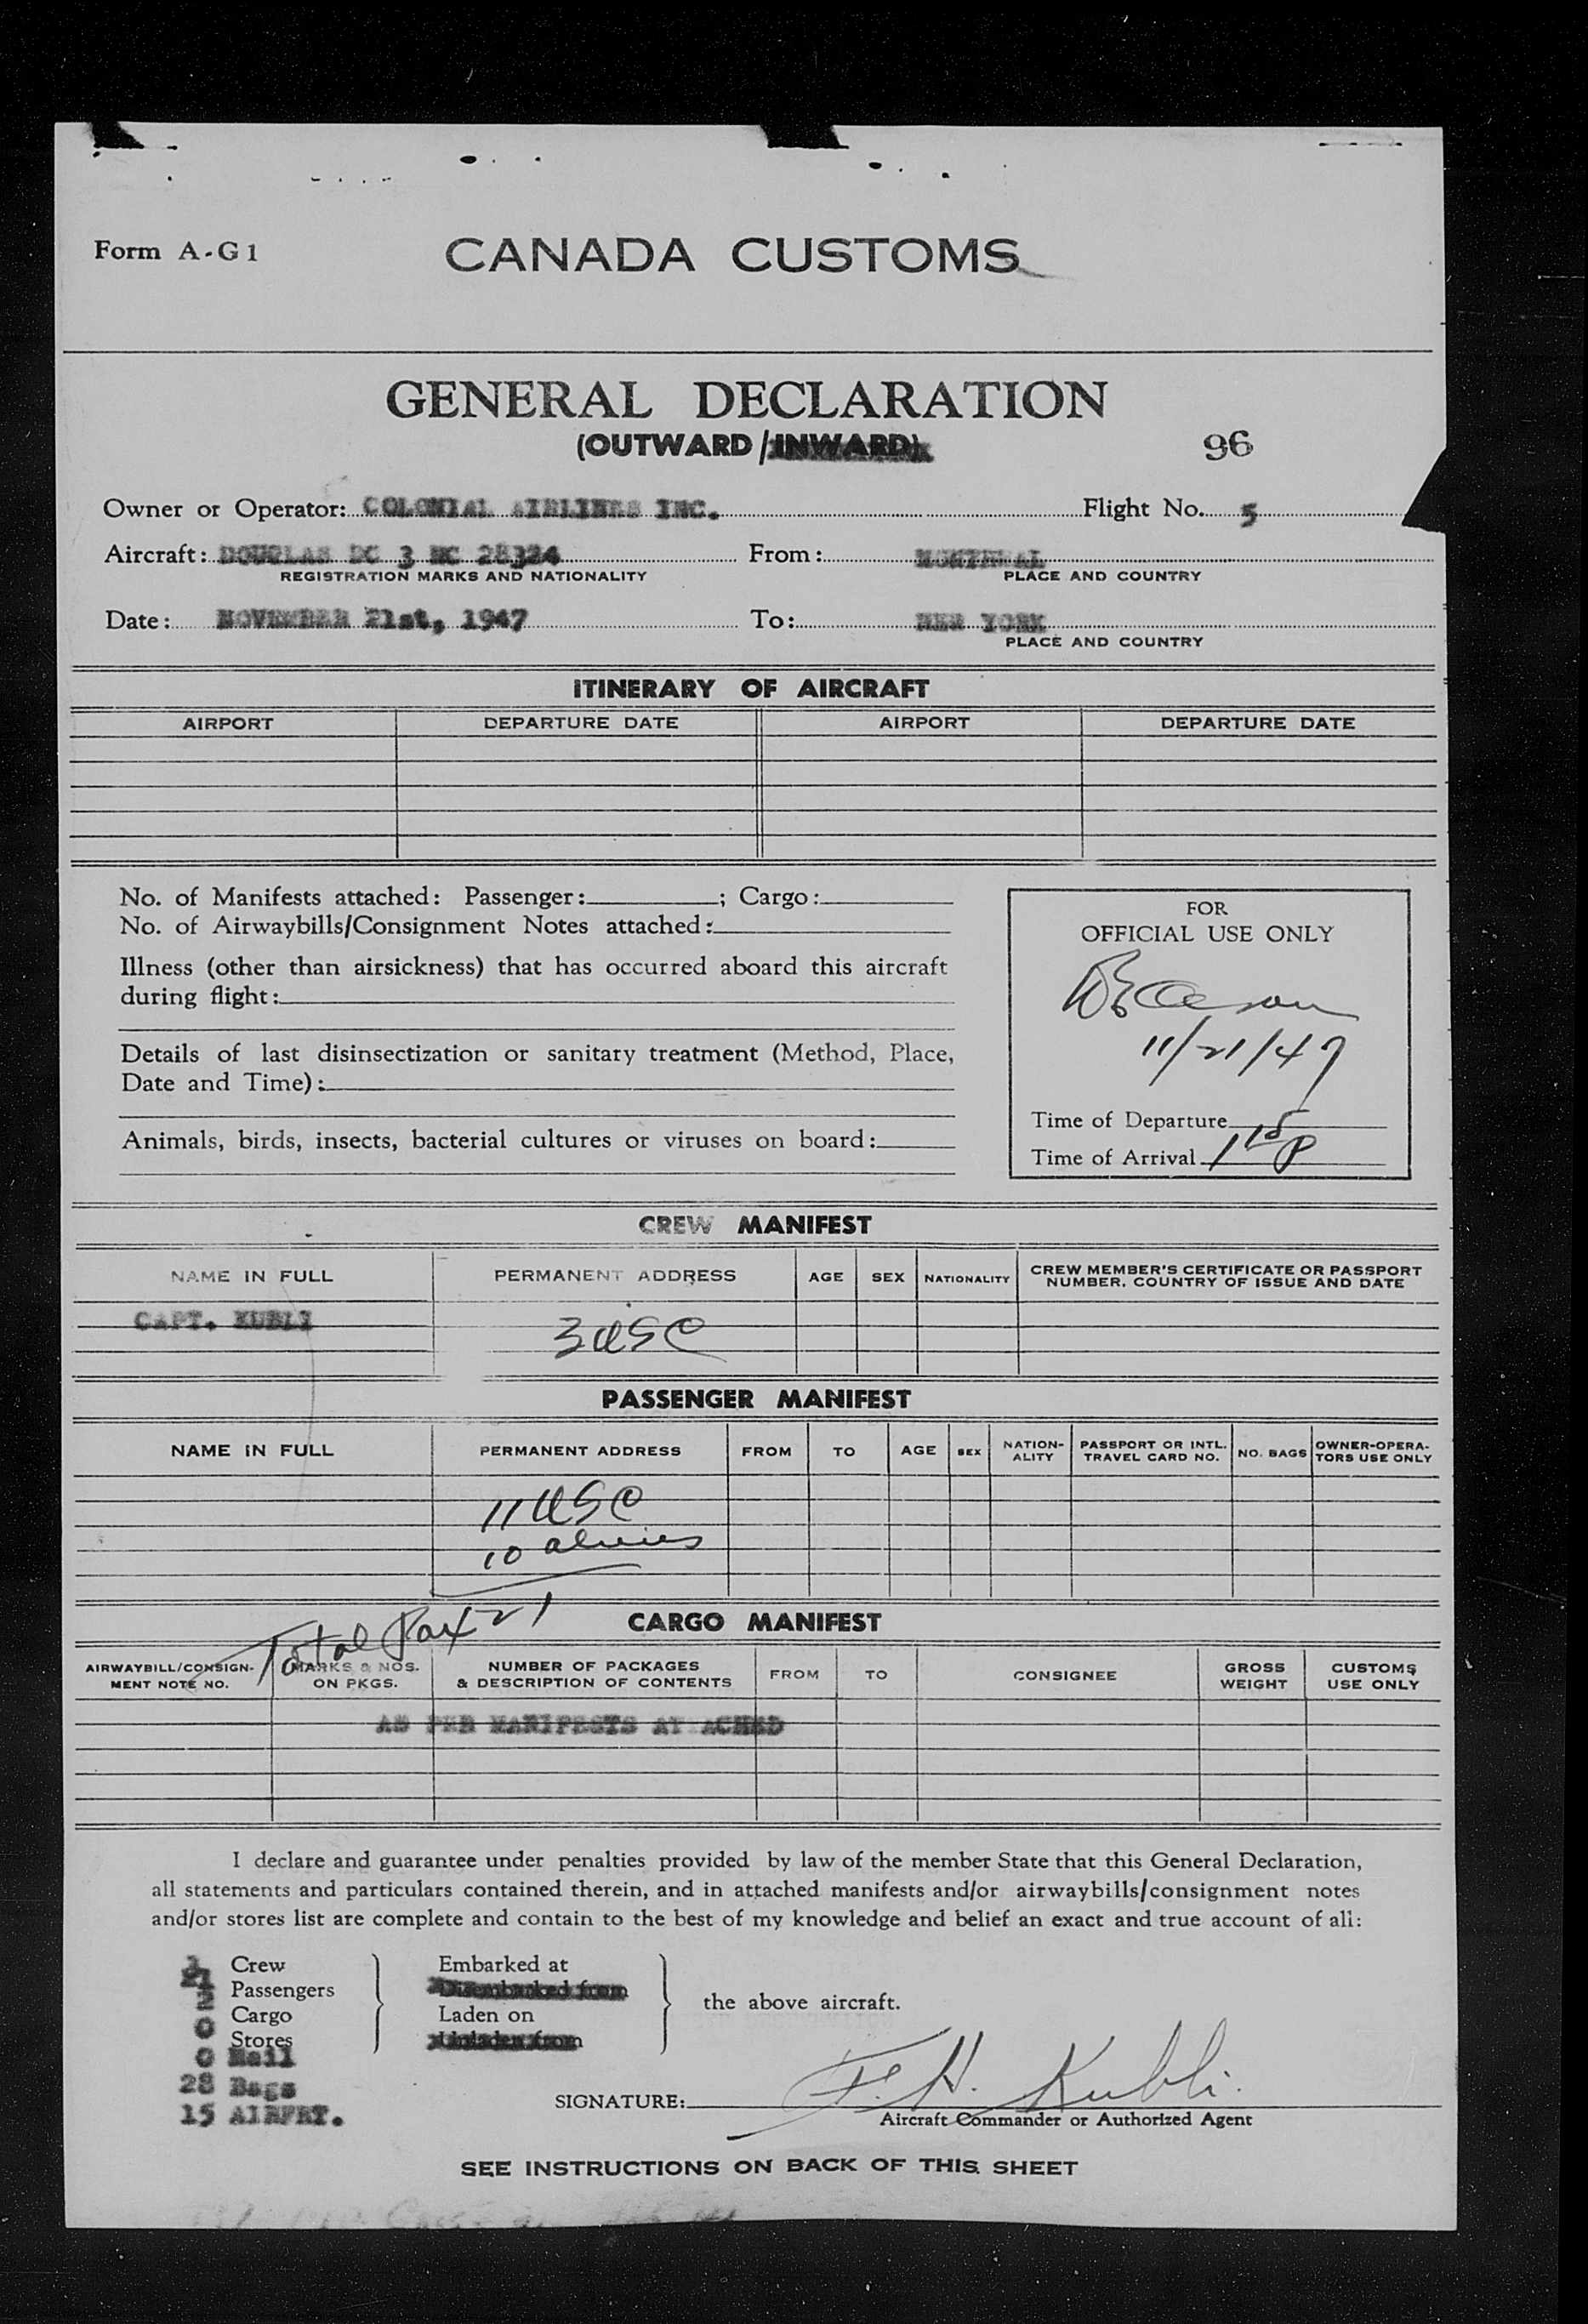 Form A-G1
CANADA CUSTOMS
GENERAL DECLARATION
(OUTWARD/INWARD)
96
Owner or Operator: COLONIAL AIRLINES INC. Flight No. 5
Aircraft: DOUGLAS DC 3 NC 28324 From: MONTREAL
REGISTRATION MARKS AND NATIONALITY PLACE AND COUNTRY
Date: NOVEMBER 21st, 1947 To: NEW YORK
PLACE AND COUNTRY
ITINERARY OF AIRCRAFT
AIRPORT DEPARTURE DATE AIRPORT DEPARTURE DATE
No. of Manifests attached: Passenger: ; Cargo:
No. of Airwaybills/Consignment Notes attached:
Illness (other than airsickness) that has occurred aboard this aircraft
during flight:
Details of last disinsectization or sanitary treatment (Method, Place,
Date and Time):
Animals, birds, insects, bacterial cultures or viruses on board:
FOR
OFFICIAL USE ONLY
11/21/47
Time of Departure
Time of Arrival 1 15 P
CREW MANIFEST
NAME IN FULL PERMANENT ADDRESS AGE SEX NATIONALITY CREW MEMBER'S CERTIFICATE OR PASSPORT
NUMBER, COUNTRY OF ISSUE AND DATE
CAPT. KUBLI
3 USC
PASSENGER MANIFEST
NAME IN FULL PERMANENT ADDRESS FROM TO AGE SEX NATION-
ALITY PASSPORT OR INTL.
TRAVEL CARD NO. NO. BAGS OWNER-OPERA-
TORS USE ONLY
11 USC
10 aliens
Total Pax 21
CARGO MANIFEST
AIRWAYBILL/CONSIGN-
MENT NOTE NO. MARKS & NOS.
ON PKGS. NUMBER OF PACKAGES
& DESCRIPTION OF CONTENTS FROM TO CONSIGNEE GROSS
WEIGHT CUSTOMS
USE ONLY
AS PER MANIFESTS AT ACHED
I declare and guarantee under penalties provided by law of the member State that this General Declaration,
all statements and particulars contained therein, and in attached manifests and/or airwaybills/consignment notes
and/or stores list are complete and contain to the best of my knowledge and belief an exact and true account of all:
3 Crew Embarked at
21 Passengers Disembarked from
2 Cargo Laden on
0 Stores Unladen from
the above aircraft.
0 Mail
28 Bags
15 AIRFRT.
SIGNATURE: F. H. Kubli
Aircraft Commander or Authorized Agent
SEE INSTRUCTIONS ON BACK OF THIS SHEET